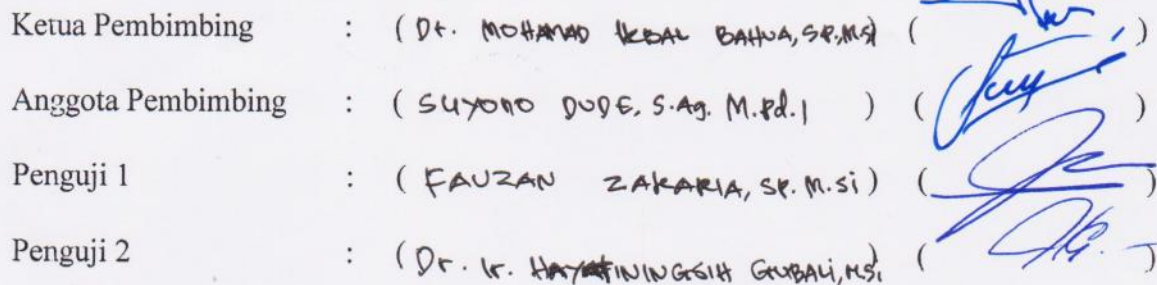 Ketua Pembimbing : ( Dr. MOHAMAD IKBAL BAHUA, SP, MSi ( )
Anggota Pembimbing : ( SUYONO DUDE, S.Ag. M.Pd.I ) ( )
Penguji 1 : ( FAUZAN ZAKARIA, SP. M.Si ) ( )
Penguji 2 : ( Dr. Ir. HAYATININGSIH GUBALI, MSi ( )